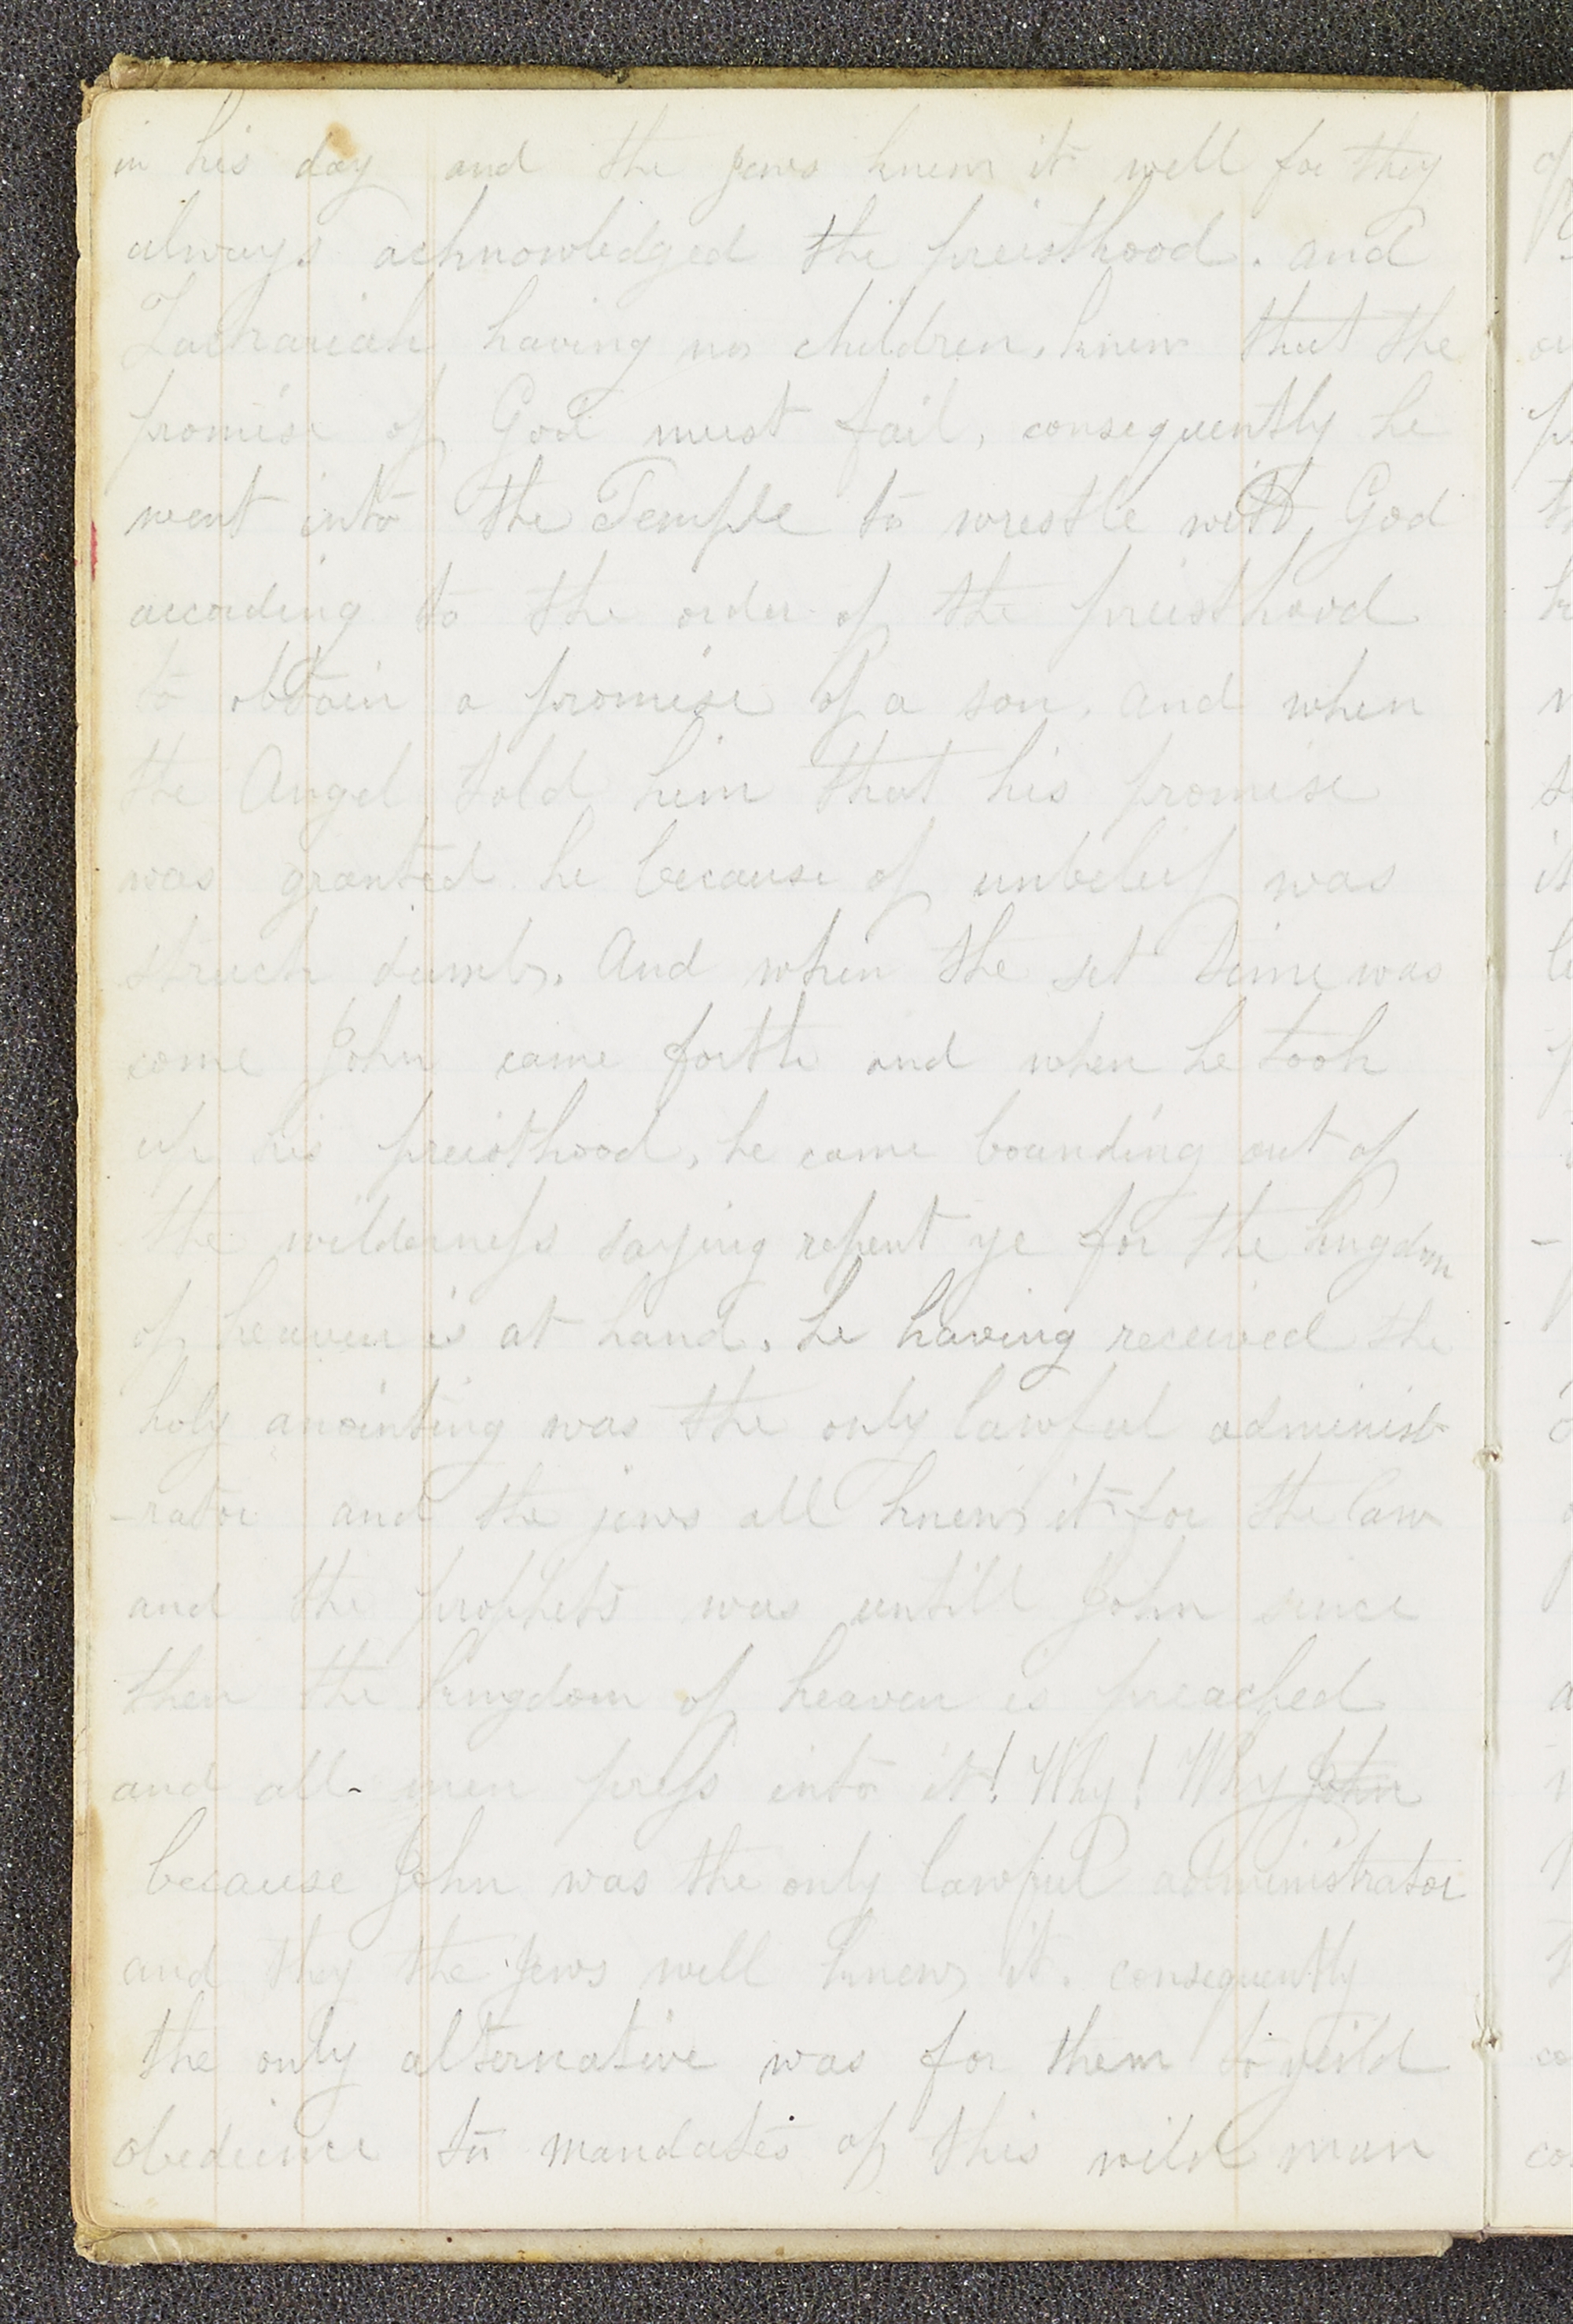 in his day and the Jews knew it well for they
always acknowledged the preisthood. and
Zachariah having no children, knew that the
promise of God must fail, consequently he
went into the Temple to wrestle with God
according to the order of the preisthood
to obtain a promise of a son. and when
the Angel told him that his promise
was granted he because of unbeleif was
struck dumb. And when the set time was
come John came forth and when he took
up his preisthood, he came bounding out of
the wilderness saying repent ye for the kingdom
of heaven is at hand. he having received the
holy anointing was the only lawful administ
-rator and the jews all knew it for the law
and the prophets was untill John since
then the kingdom of heaven is preached
and all men press into it! Why! Why John
because John was the only lawful administrator
and they the Jews well knew it. consequently
the only alternative was for them to yeild
obedience to mandates of this wild man